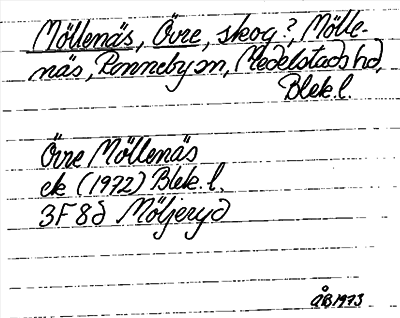 Möllenäs, Övre, skog?, Mölle-
näs, Ronneby sn, Medelstads hd,
Blek.l.
Övre Möllenäs
ek (1972) Blek.l.
3F 8d Möljeryd
ÅB 1973